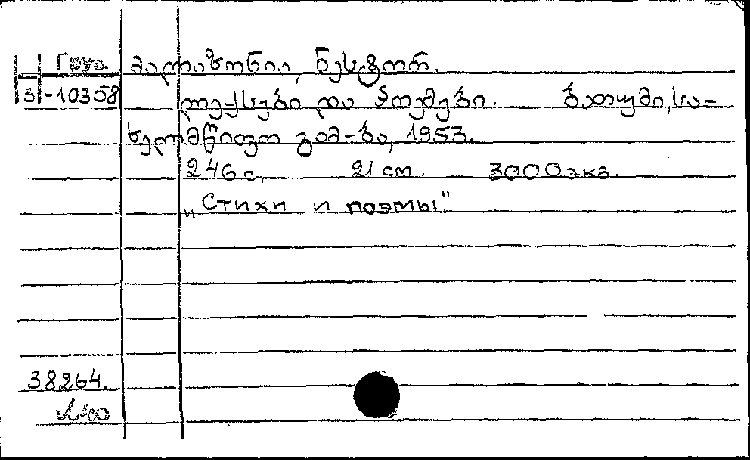 Груз. მალაზონია, ნესტორ.
3-10358 ლექსები და პოემები. ბათუმი, სა-
ხელმწიფო გამ-ბა, 1953.
246 с. 21 см. 3000 экз.
„Стихи и поэмы"
38264.